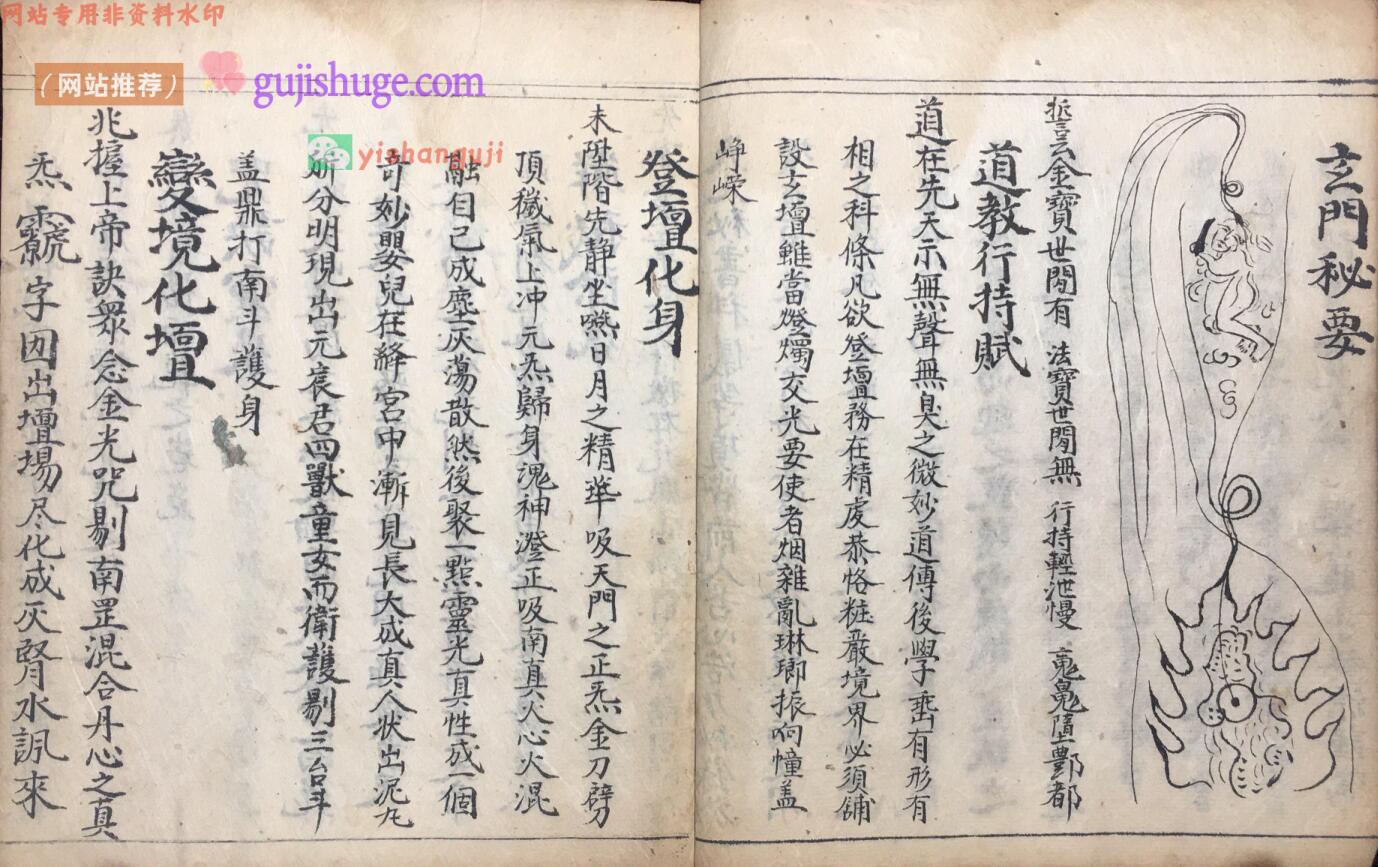 网站专用非资料水印
（网站推荐）
gujishuge.com
yishanguji
玄門秘要
誓云金寶世間有 法寶世間無 行持輕泄慢 鬼墮酆都
道教行持賦
道在先天示無聲無臭之微妙道傳後學垂有形有
相之科條凡欲登壇務在精虔恭恪粧嚴境界必須鋪
設玄壇雖當燈燭交光要使者烟雜亂琳瑯振响幢盖
崢嶸
登壇化身
未陞階先静坐嚥日月之精華吸天門之正炁金刀劈
頂穢氣上冲元炁歸身混神澄正吸南真火心火混
融自己成塵灰蕩散然後聚一㸃靈光真性成一個
奇妙嬰兒在絳宮中漸見長大成真人狀出泥丸
分明現出元辰君四獸童女而衛護剔三台斗
盖鼎打南斗護身
變境化壇
兆握上帝訣眾念金光咒剔南罡混合丹心之真
炁字因出壇場尽化成灰腎水訊來